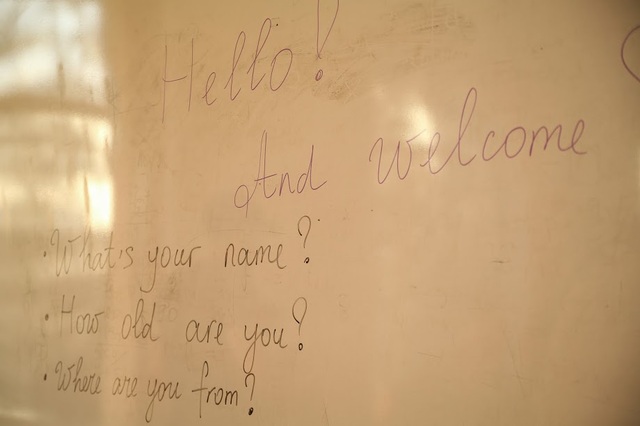 Hello!
And welcome
· What's your name?
· How old are you?
· Where are you from?